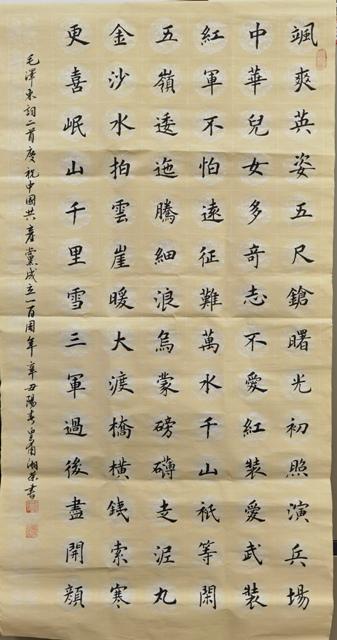 颯爽英姿五尺鎗曙光初照演兵場
中華兒女多奇志不愛紅裝愛武裝
紅軍不怕遠征難萬水千山祇等閑
五嶺逶迤騰細浪烏蒙磅礴走泥丸
金沙水拍雲崖暖大渡橋橫鐵索寒
更喜岷山千里雪三軍過後盡開顏
毛澤東詞二首慶祝中國共產黨成立一百周年辛丑陽春書